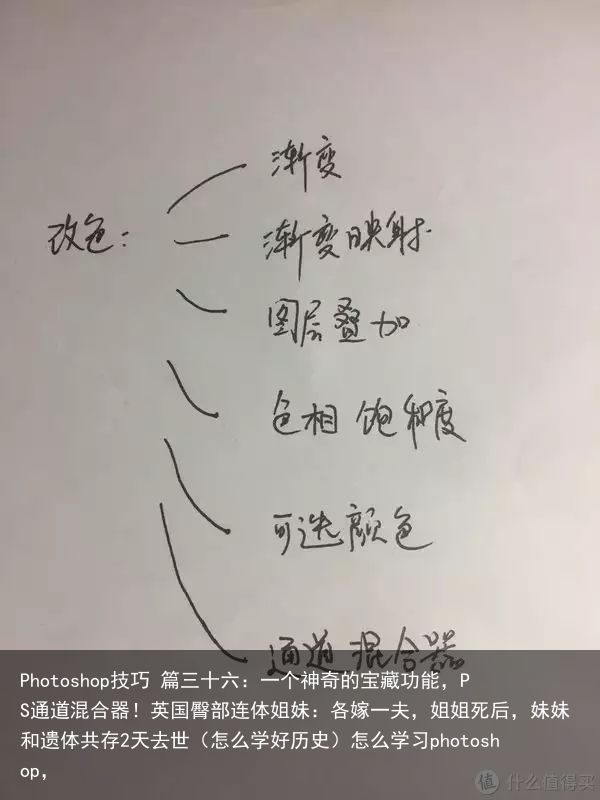 渐变
改色：
渐变映射
图层叠加
色相 饱和度
可选颜色
通道混合器
Photoshop技巧 篇三十六：一个神奇的宝藏功能，P
S通道混合器！英国臀部连体姐妹：各嫁一夫，姐姐死后，妹妹
和遗体共存2天去世（怎么学好历史）怎么学习photosh
op，
值 什么值得买